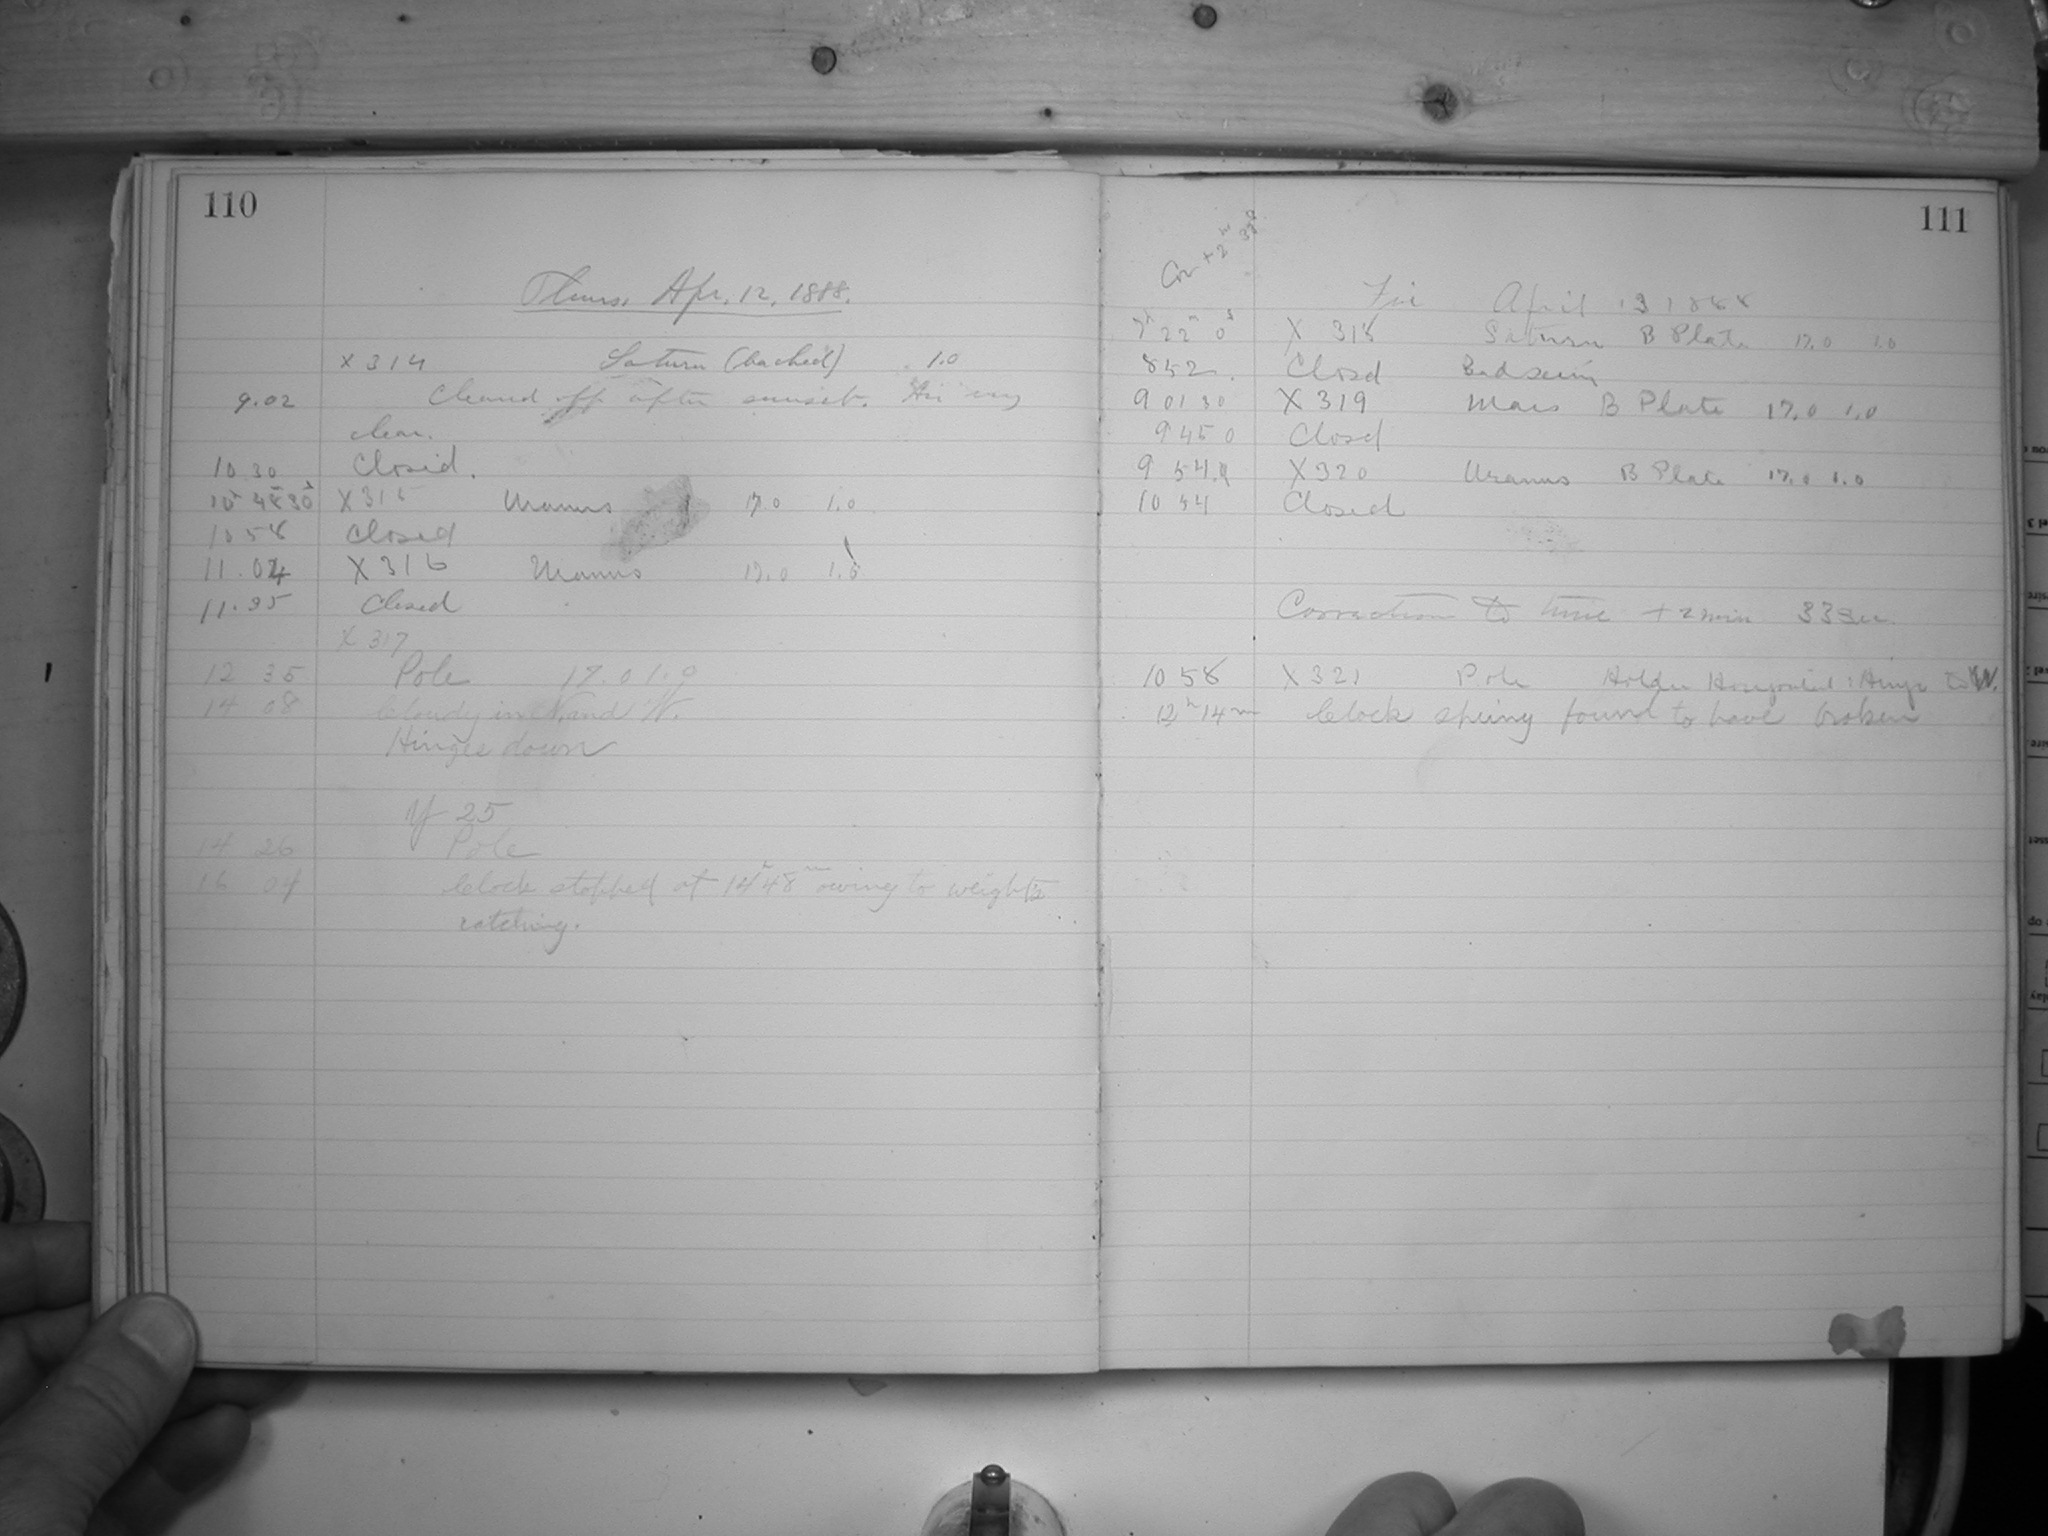 110
Thurs. Apr. 12, 1888.
X 314 Saturn (backed) 1.0
9.02 Cleared off after sunset. Air very
clear.
10 30 Closed.
10h 48m 30s X 315 Uranus 17.0 1.0
10 58 Closed
11.04 X 316 Uranus 17.0 1.0
11.35 Closed
X 317
12 35 Pole 17.0 1.9
14 08 Cloudy in N. and W.
Hinges down
Y 25
14 26 Pole
16 04 Clock stopped at 14h 48m owing to weights
catching.
111
Cor + 2m
Fri April 13 1888
7h 22m 0s X 318 Saturn B Plate 17.0 1.0
8 52. Closed Bad seeing
9 01 30 X 319 Mars B Plate 17.0 1.0
9 45 0 Closed
9 54. X 320 Uranus B Plate 17.0 1.0
10 34 Closed
Correction to time + 2 min 33 sec.
10 58 X 321 Pole Holder Horizontal: Hinge to W.
12h 14m Clock spring found to have broken